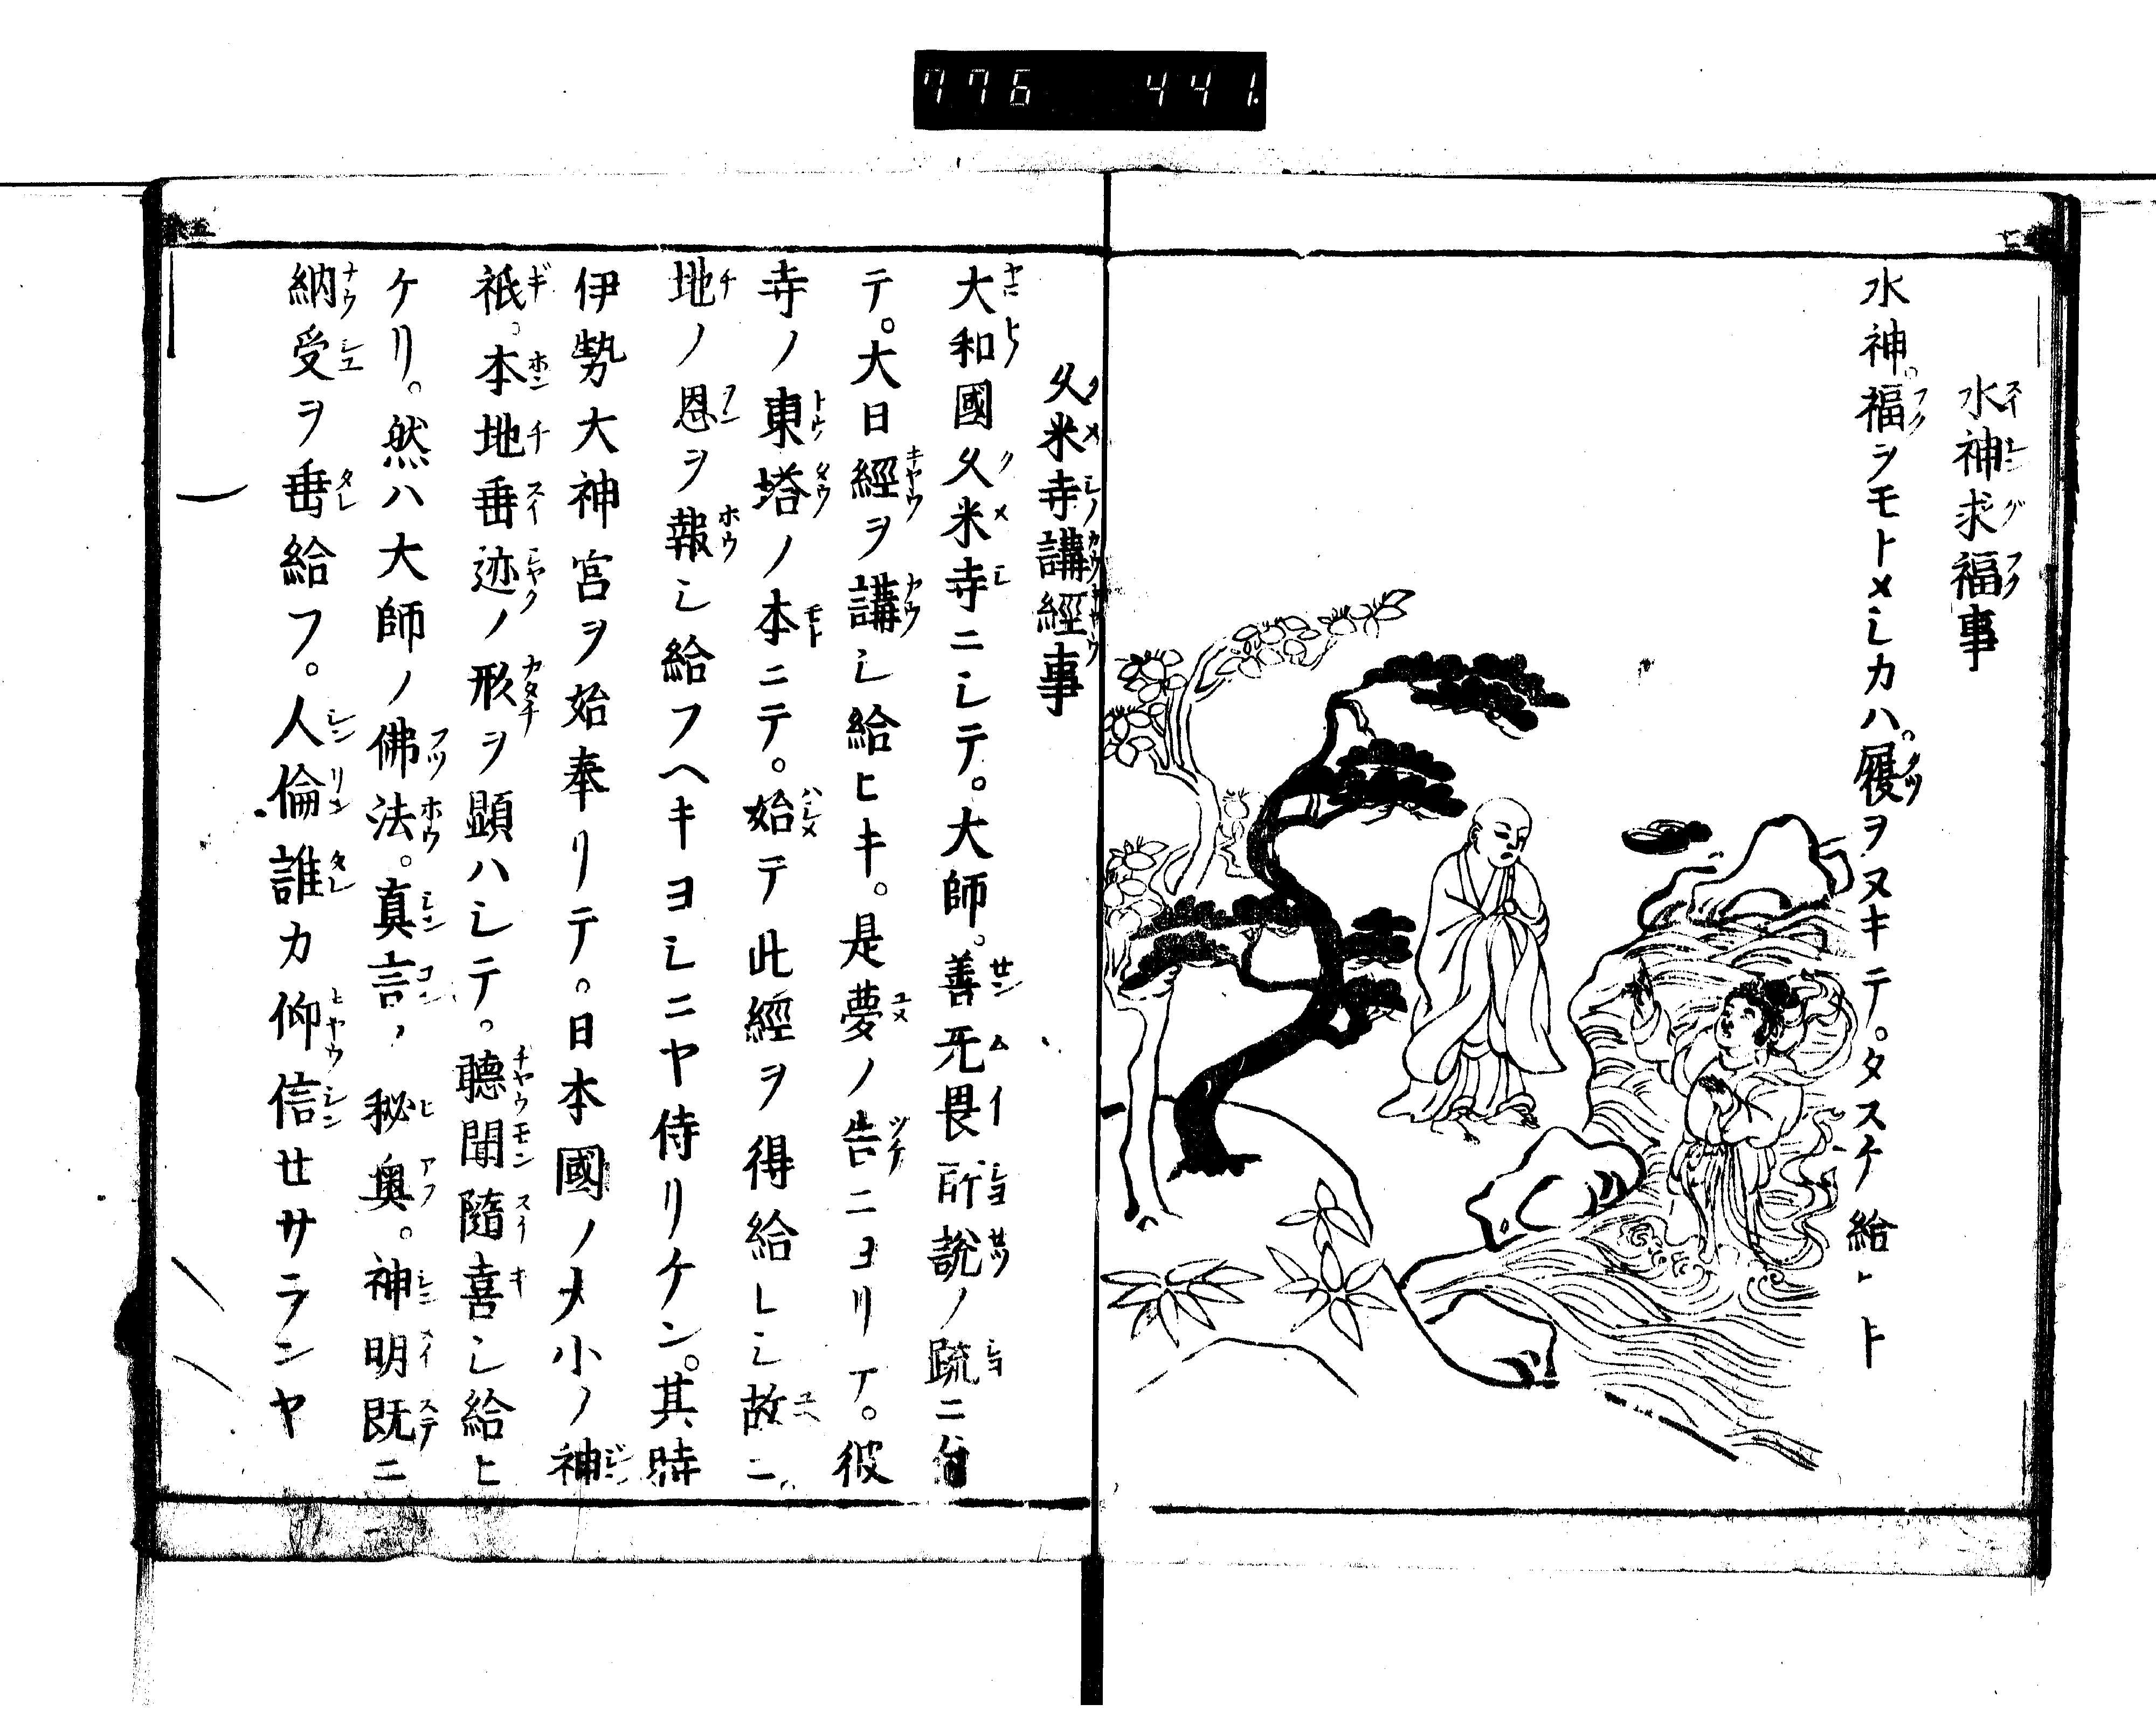 776 441.
水神求福事
水神。福ヲモトメシカハ。履ヲヌキテ。タスケ給ヘト
久米寺講經事
大和國久米寺ニシテ。大師。善无畏所說ノ疏ニ
テ。大日經ヲ講シ給ヒキ。是夢ノ告ニヨリテ。彼
寺ノ東塔ノ本ニテ。始テ此經ヲ得給シ故ニ
地ノ恩ヲ報シ給フヘキヨシニヤ侍リケン。其時
伊勢大神宮ヲ始奉リテ。日本國ノ大小ノ神
祇。本地垂迹ノ形ヲ顯ハシテ。聽聞隨喜シ給ヒ
ケリ。然ハ大師ノ佛法。真言ノ秘奥。神明既ニ
納受ヲ垂給フ。人倫誰カ仰信セサランヤ